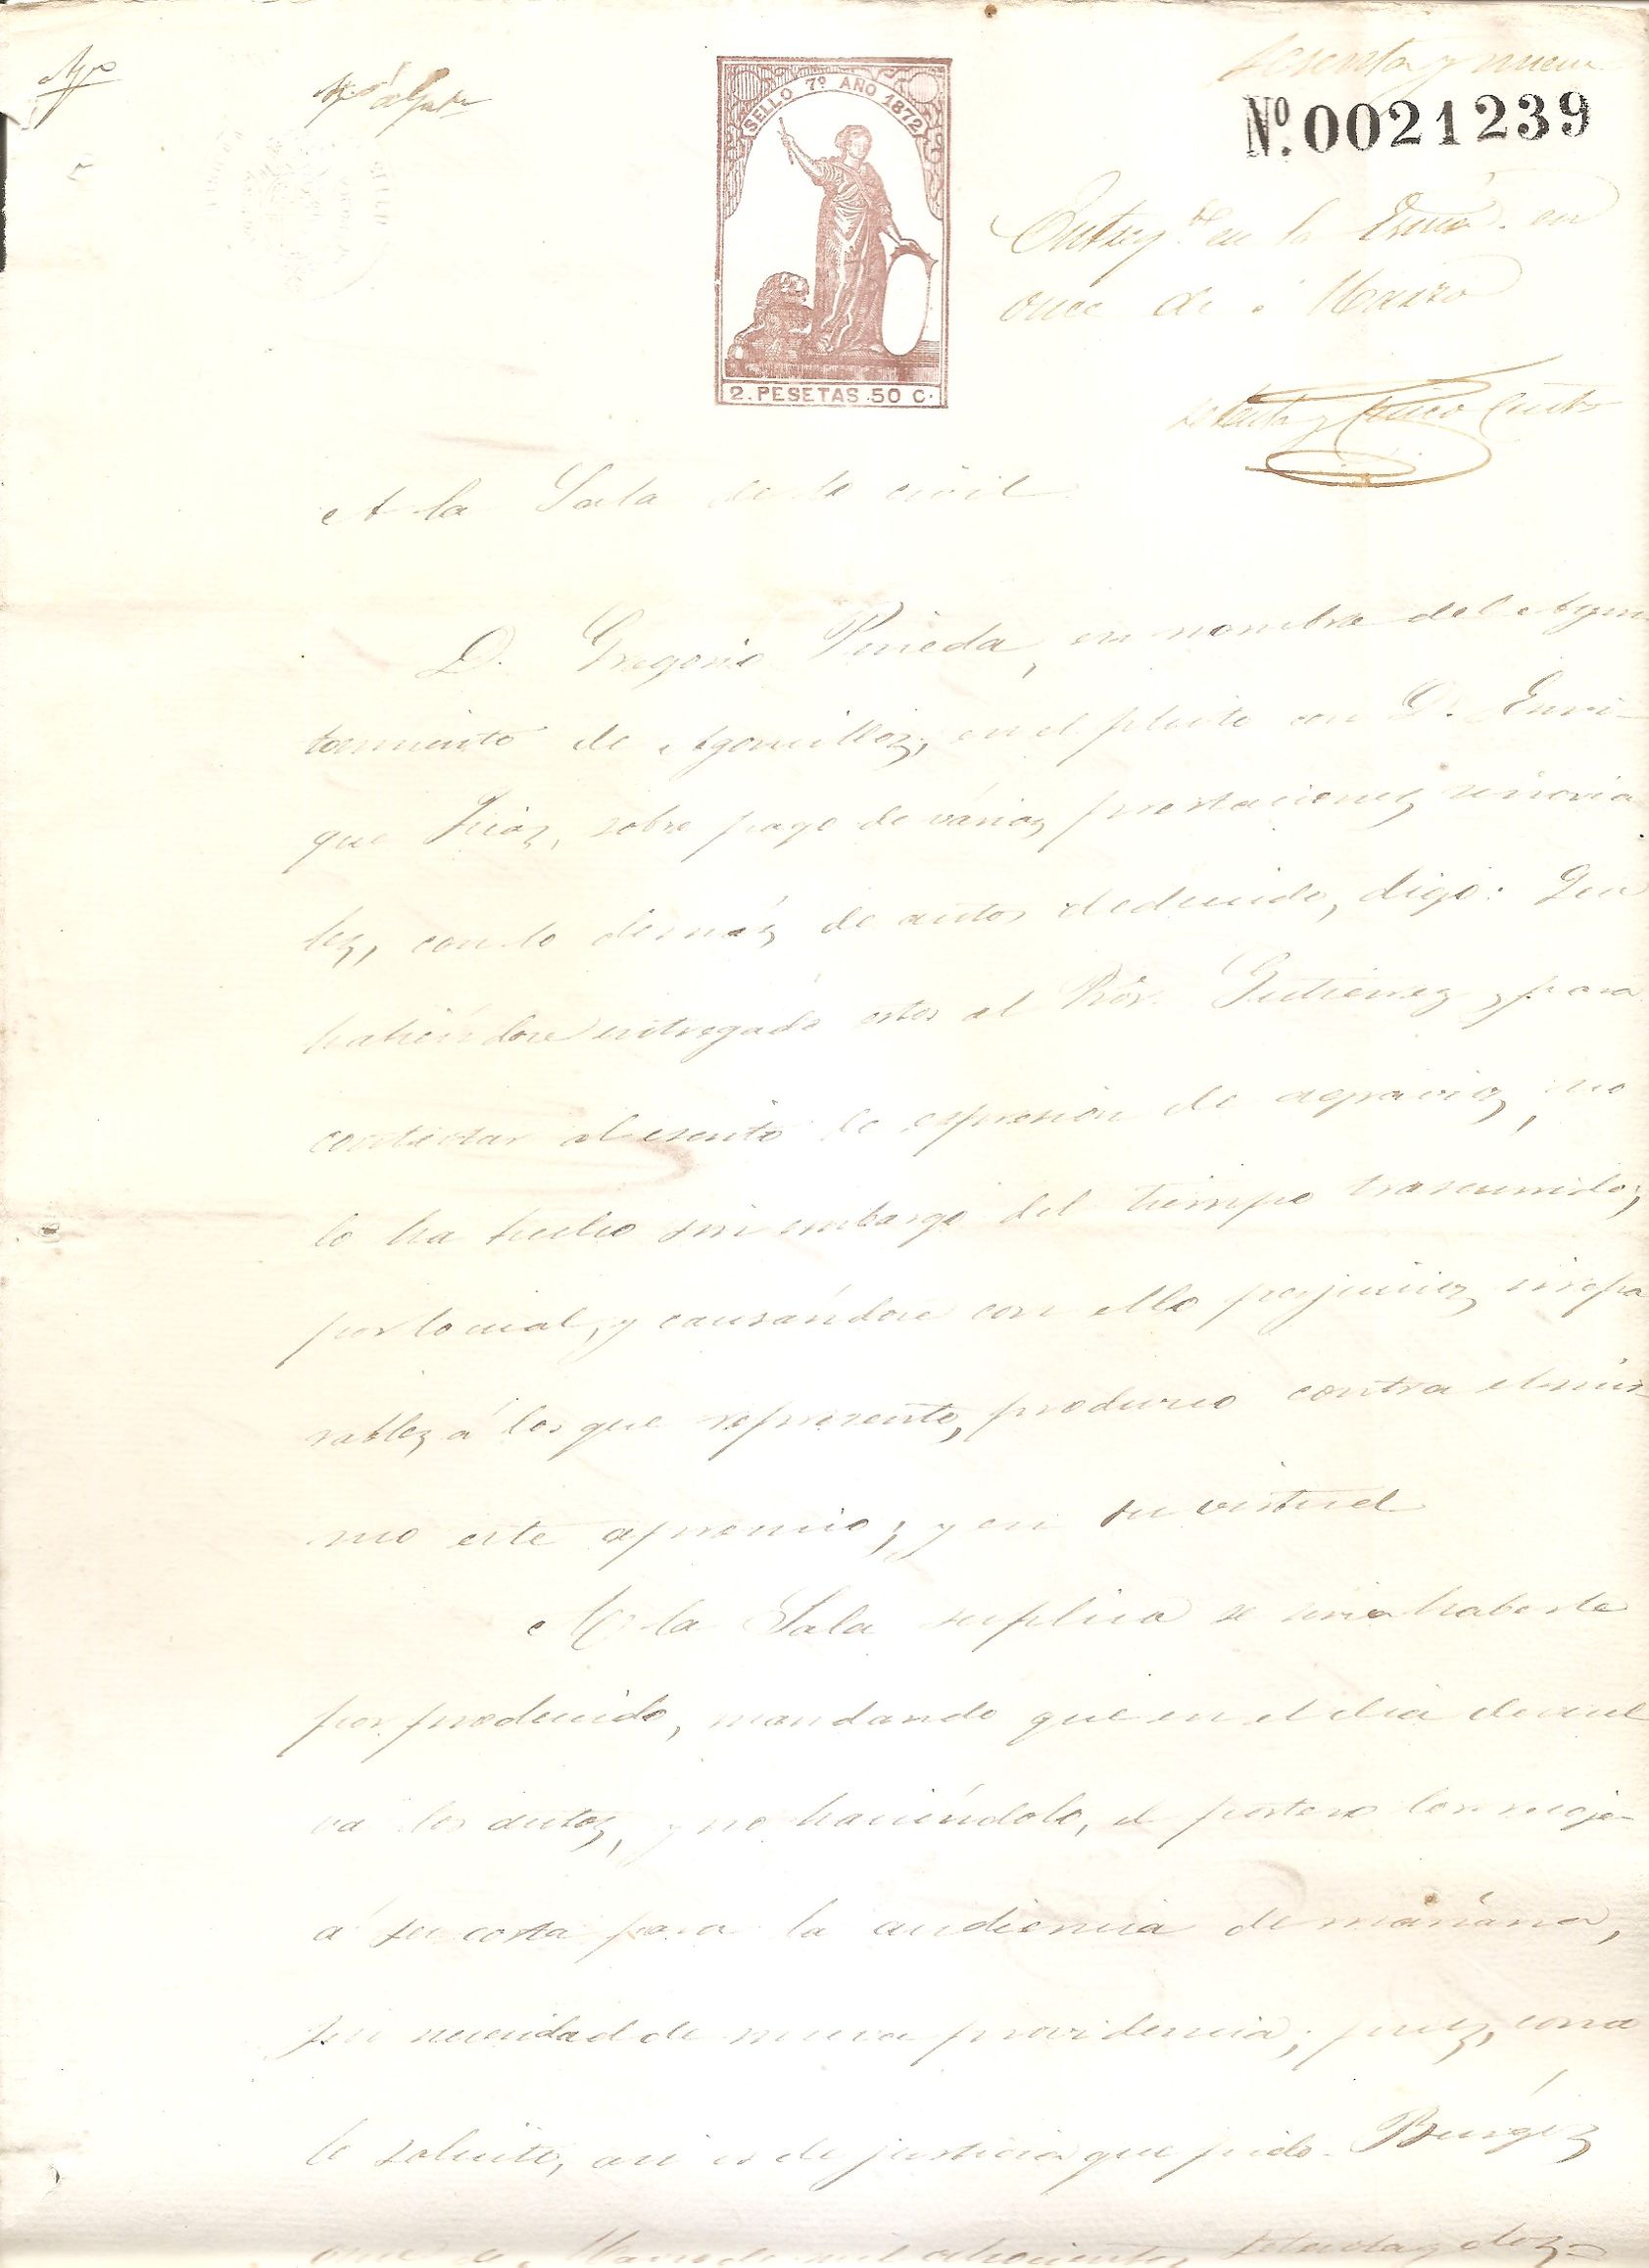 sesenta y nueve
Nº. 0021239
SELLO 7º AÑO 1872
2. PESETAS .50 C.
en la Esnía. en
once de Marzo
setenta y
A la Sala de lo civil
D. Gregorio Pineda, en nombre del Ayun
tamiento de Agoncillo, en el pleito con D. Enri-
que sobre pago de várias prestaciones señoria
les, con lo demás de autos deducido, digo: Que
habiéndose entregado estos al Pror. Gutierrez, para
contestar al escrito de espresion de agravios, no
lo ha hecho sin embargo del tiempo trascurrido;
por lo cual, y causándose con ello perjuicios irrepa
rables á los que represento, produzco contra el mis-
mo este apremio; y en su virtud
A la Sala suplico se sirva haberle
por producido, mandando que en el dia devuel
va los autos, y no haciéndolo, el portero los recoja
á su costa para la audiencia de mañana,
sin necesidad de nueva providencia; pues, como
lo solicito, asi es de justicia que pido. Búrgos
once de Marzo de mil ochocientos setenta y dos.